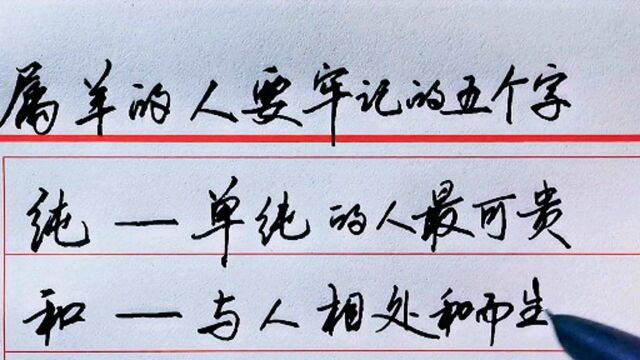 属羊的人要牢记的五个字
纯 — 单纯的人最可贵
和 — 与人相处和而生